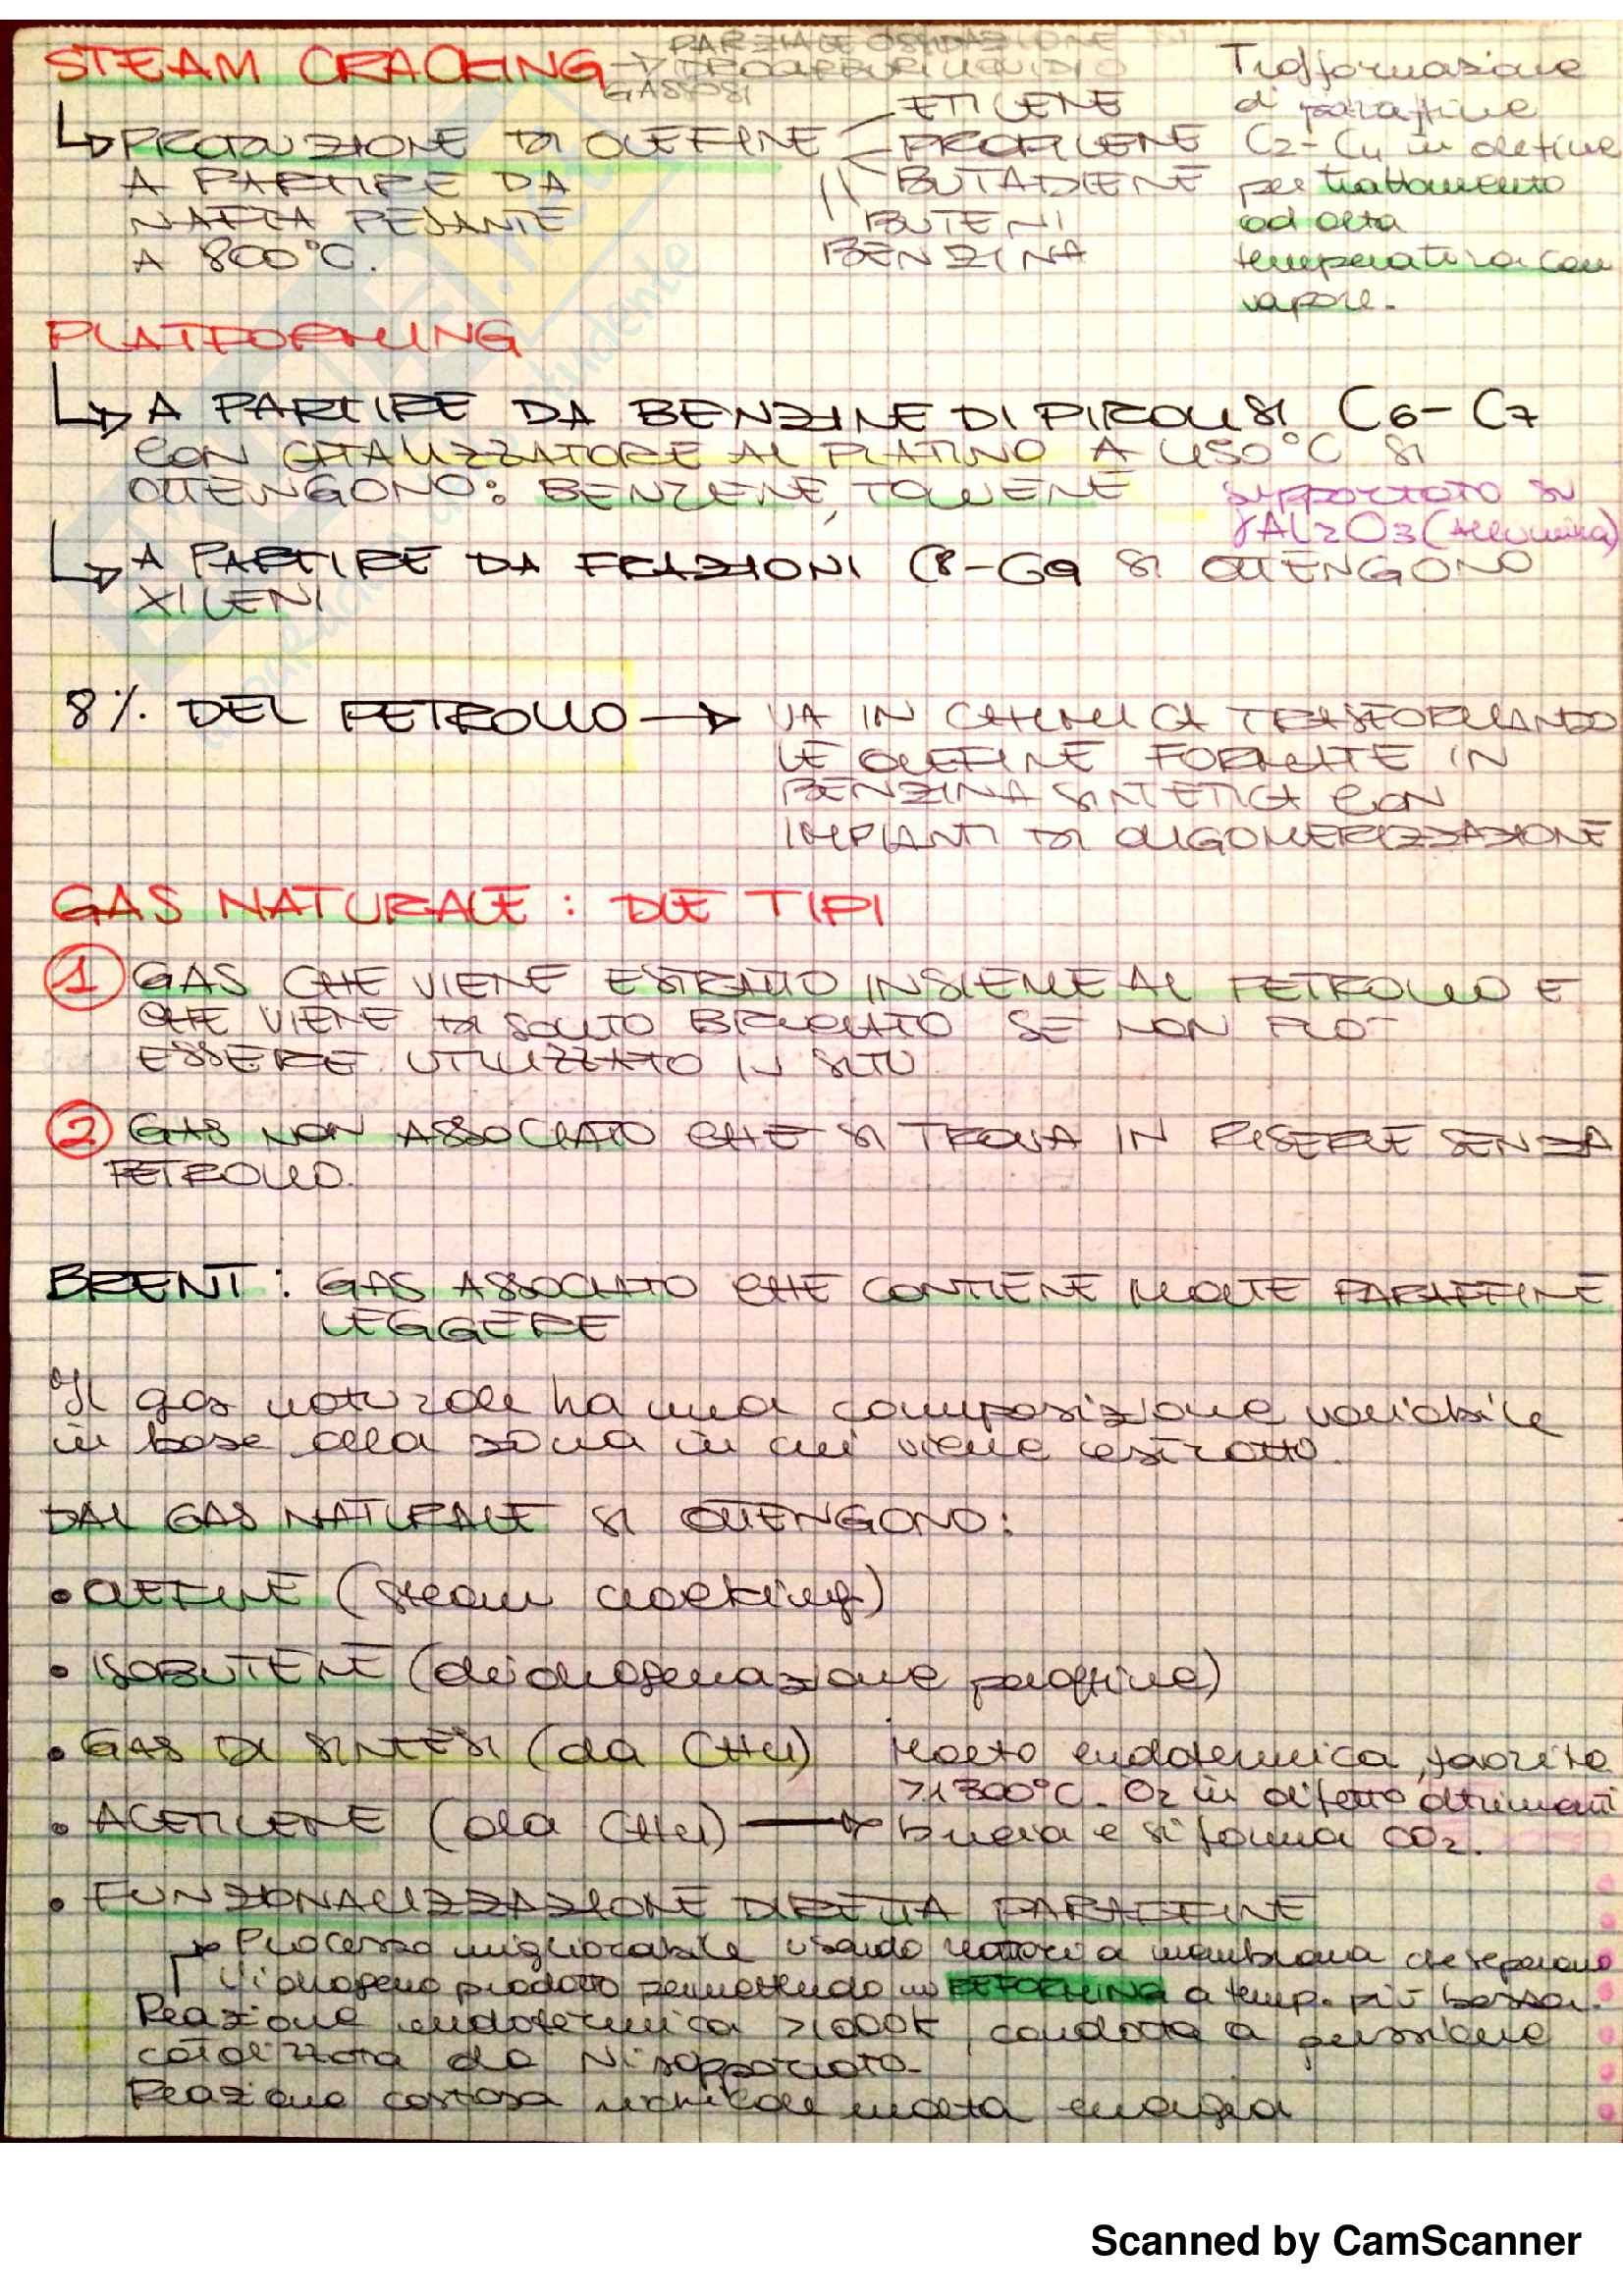 STEAM CRACKING → PARZIALE OSSIDAZIONE DI
IDROCARBURI LIQUIDI O
GASSOSI
↳ PRODUZIONE DI OLEFINE
A PARTIRE DA
NAFTA PESANTE
A 800°C.
ETILENE
PROPILENE
BUTADIENE
BUTENI
BENZINA
Trasformazione
di paraffine
C2-C4 in olefine
per trattamento
ad alta
temperatura con
vapore.
PLATFORMING
↳ A PARTIRE DA BENZINE DI PIROLISI C6-C7
CON CATALIZZATORE AL PLATINO A 450°C SI
OTTENGONO: BENZENE, TOLUENE
supportato su
γAl2O3 (Allumina)
↳ A PARTIRE DA FRAZIONI C8-C9 SI OTTENGONO
XILENI
8% DEL PETROLIO → VA IN CHIMICA TRASFORMANDO
LE OLEFINE FORMATE IN
BENZINA SINTETICA CON
IMPIANTI DI OLIGOMERIZZAZIONE
GAS NATURALE: DUE TIPI
1 GAS CHE VIENE ESTRATTO INSIEME AL PETROLIO E
CHE VIENE DI SOLITO BRUCIATO SE NON PUO'
ESSERE UTILIZZATO IN SITU
2 GAS NON ASSOCIATO CHE SI TROVA IN RISERVE SENZA
PETROLIO.
BRENT: GAS ASSOCIATO CHE CONTIENE MOLTE PARAFFINE
LEGGERE
Il gas naturale ha una composizione variabile
in base alla zona in cui viene estratto.
DAL GAS NATURALE SI OTTENGONO:
• OLEFINE (steam cracking)
• ISOBUTENE (deidrogenazione paraffine)
• GAS DI SINTESI (da CH4)
Molto endotermica, favorita
>1300°C. O2 in difetto altrimenti
• ACETILENE (da CH4) → brucia e si forma CO2.
• FUNZIONALIZZAZIONE DIRETTA PARAFFINE
→ Processo migliorabile usando reattori a membrana che separano
l'idrogeno prodotto permettendo un REFORMING a temp. più bassa.
Reazione endotermica >1000K, condotta a pressione
catalizzata da Ni supportato.
Reazione costosa richiede molta energia
Scanned by CamScanner